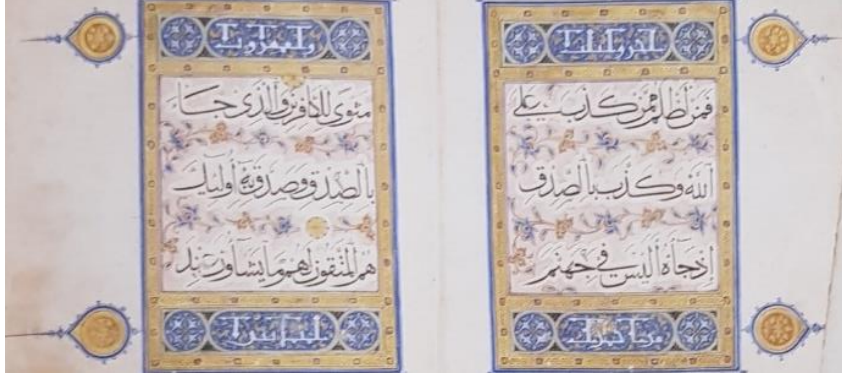 فَمَنْ أَظْلَمُ مِمَّنْ كَذَبَ عَلَى
اللَّهِ وَكَذَّبَ بِالصِّدْقِ
إِذْ جَآءَهُ أَلَيْسَ فِي جَهَنَّمَ
مَثْوًى لِلْكَافِرِينَ وَالَّذِي جَاءَ
بِالصِّدْقِ وَصَدَّقَ بِهِ أُولَئِكَ
هُمُ الْمُتَّقُونَ لَهُمْ مَا يَشَاؤُنَ عِنْدَ